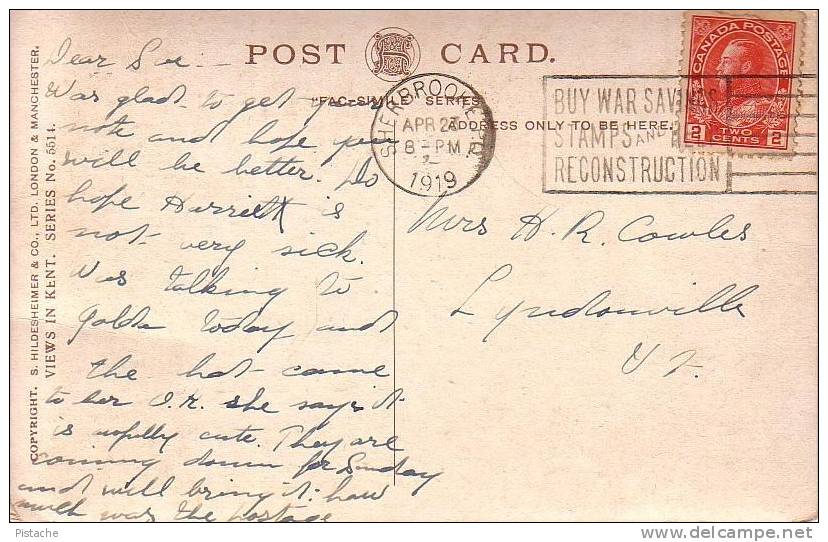 POST CARD.
"FAC-SIMILE" SERIES
ADDRESS ONLY TO BE HERE.
COPYRIGHT. S. HILDESHEIMER & CO., LTD. LONDON & MANCHESTER.
VIEWS IN KENT. SERIES No. 5514.
CANADA POSTAGE
2 TWO CENTS 2
SHERBROOKE
APR 23
8-PM
1919
BUY WAR SAVINGS
STAMPS AND
RECONSTRUCTION
Dear Sue
Was glad to get your
note and hope you
will be better. Do
hope Harriett is
not very sick.
Was talking to
Golda today and
the hat came
to her O.K. she says it
is awfully cute. They are
coming down for Sunday
and will bring it. how
much was the postage
Mrs H. R. Cowles
Lyndonville
Vt.
Pistache
www.delcampe.net